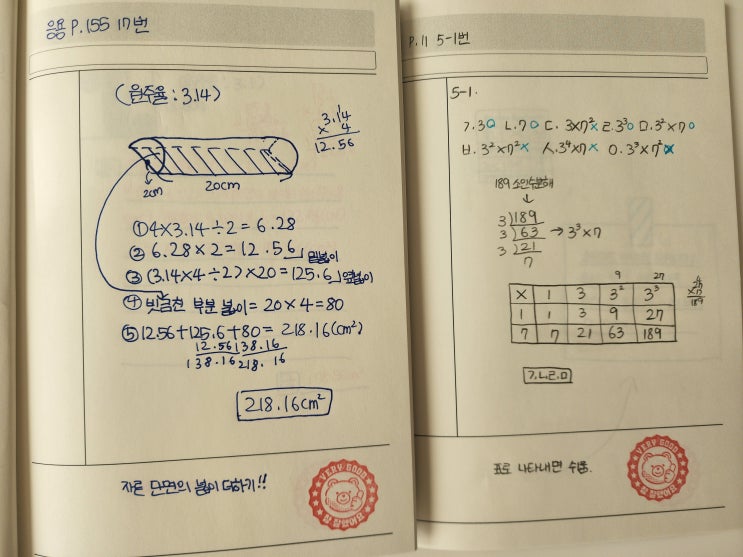 응용 P.155 17번
(원주율 : 3.14)
3.14
× 4
12.56
2cm
20cm
① 4×3.14÷2 = 6.28
② 6.28×2 = 12.56 밑넓이
③ (3.14×4÷2)×20 = 125.6 옆넓이
④ 빗금친 부분 넓이 = 20×4 = 80
⑤ 12.56+125.6+80 = 218.16(cm²)
12.56 138.16
138.16 218.16
218.16cm²
자른 단면의 넓이 더하기!!
VERY GOOD
참 잘했어요
P.11 5-1번
5-1.
ㄱ.3○ ㄴ.7○ ㄷ. 3×7²× ㄹ.3³○ ㅁ.3²×7○
ㅂ. 3²×7²× ㅅ.3⁴×7× ㅇ.3³×7²×
189 소인수분해
↓
3)189
3)63 → 3³×7
3)21
7
9 27
× 1 3 3² 3³
1 1 3 9 27
7 7 21 63 189
27
×7
189
ㄱ.ㄴ.ㄹ.ㅁ
표로 나타내면 수월.
VERY GOOD
참 잘했어요